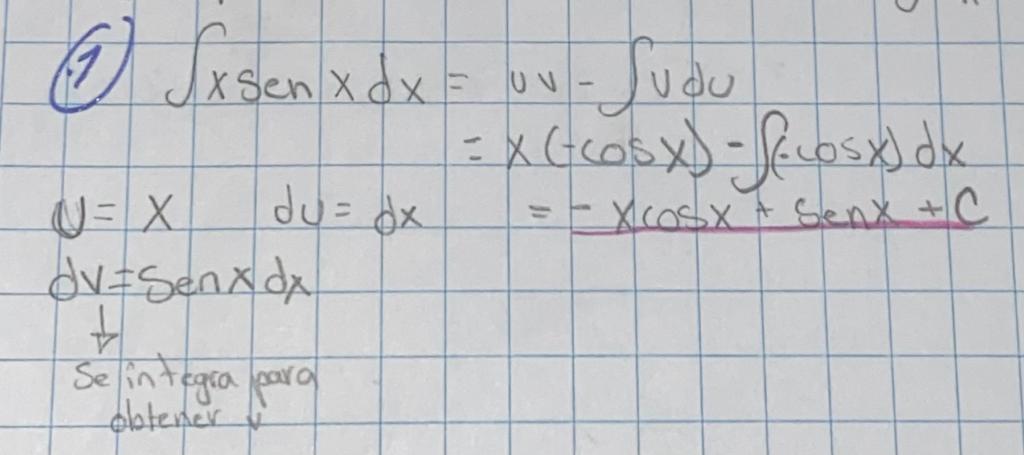 1 ∫x sen x dx = uv - ∫v du
= x(-cosx) - ∫(-cosx) dx
u = x du = dx = -xcosx + senx + C
dv = senx dx
↓
Se integra para
obtener v